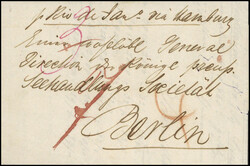 p Rio de Jan° via Hamburg
Eine wohllöbl General
Direction der Königl preuss
Seehandlungs Societät
Berlin